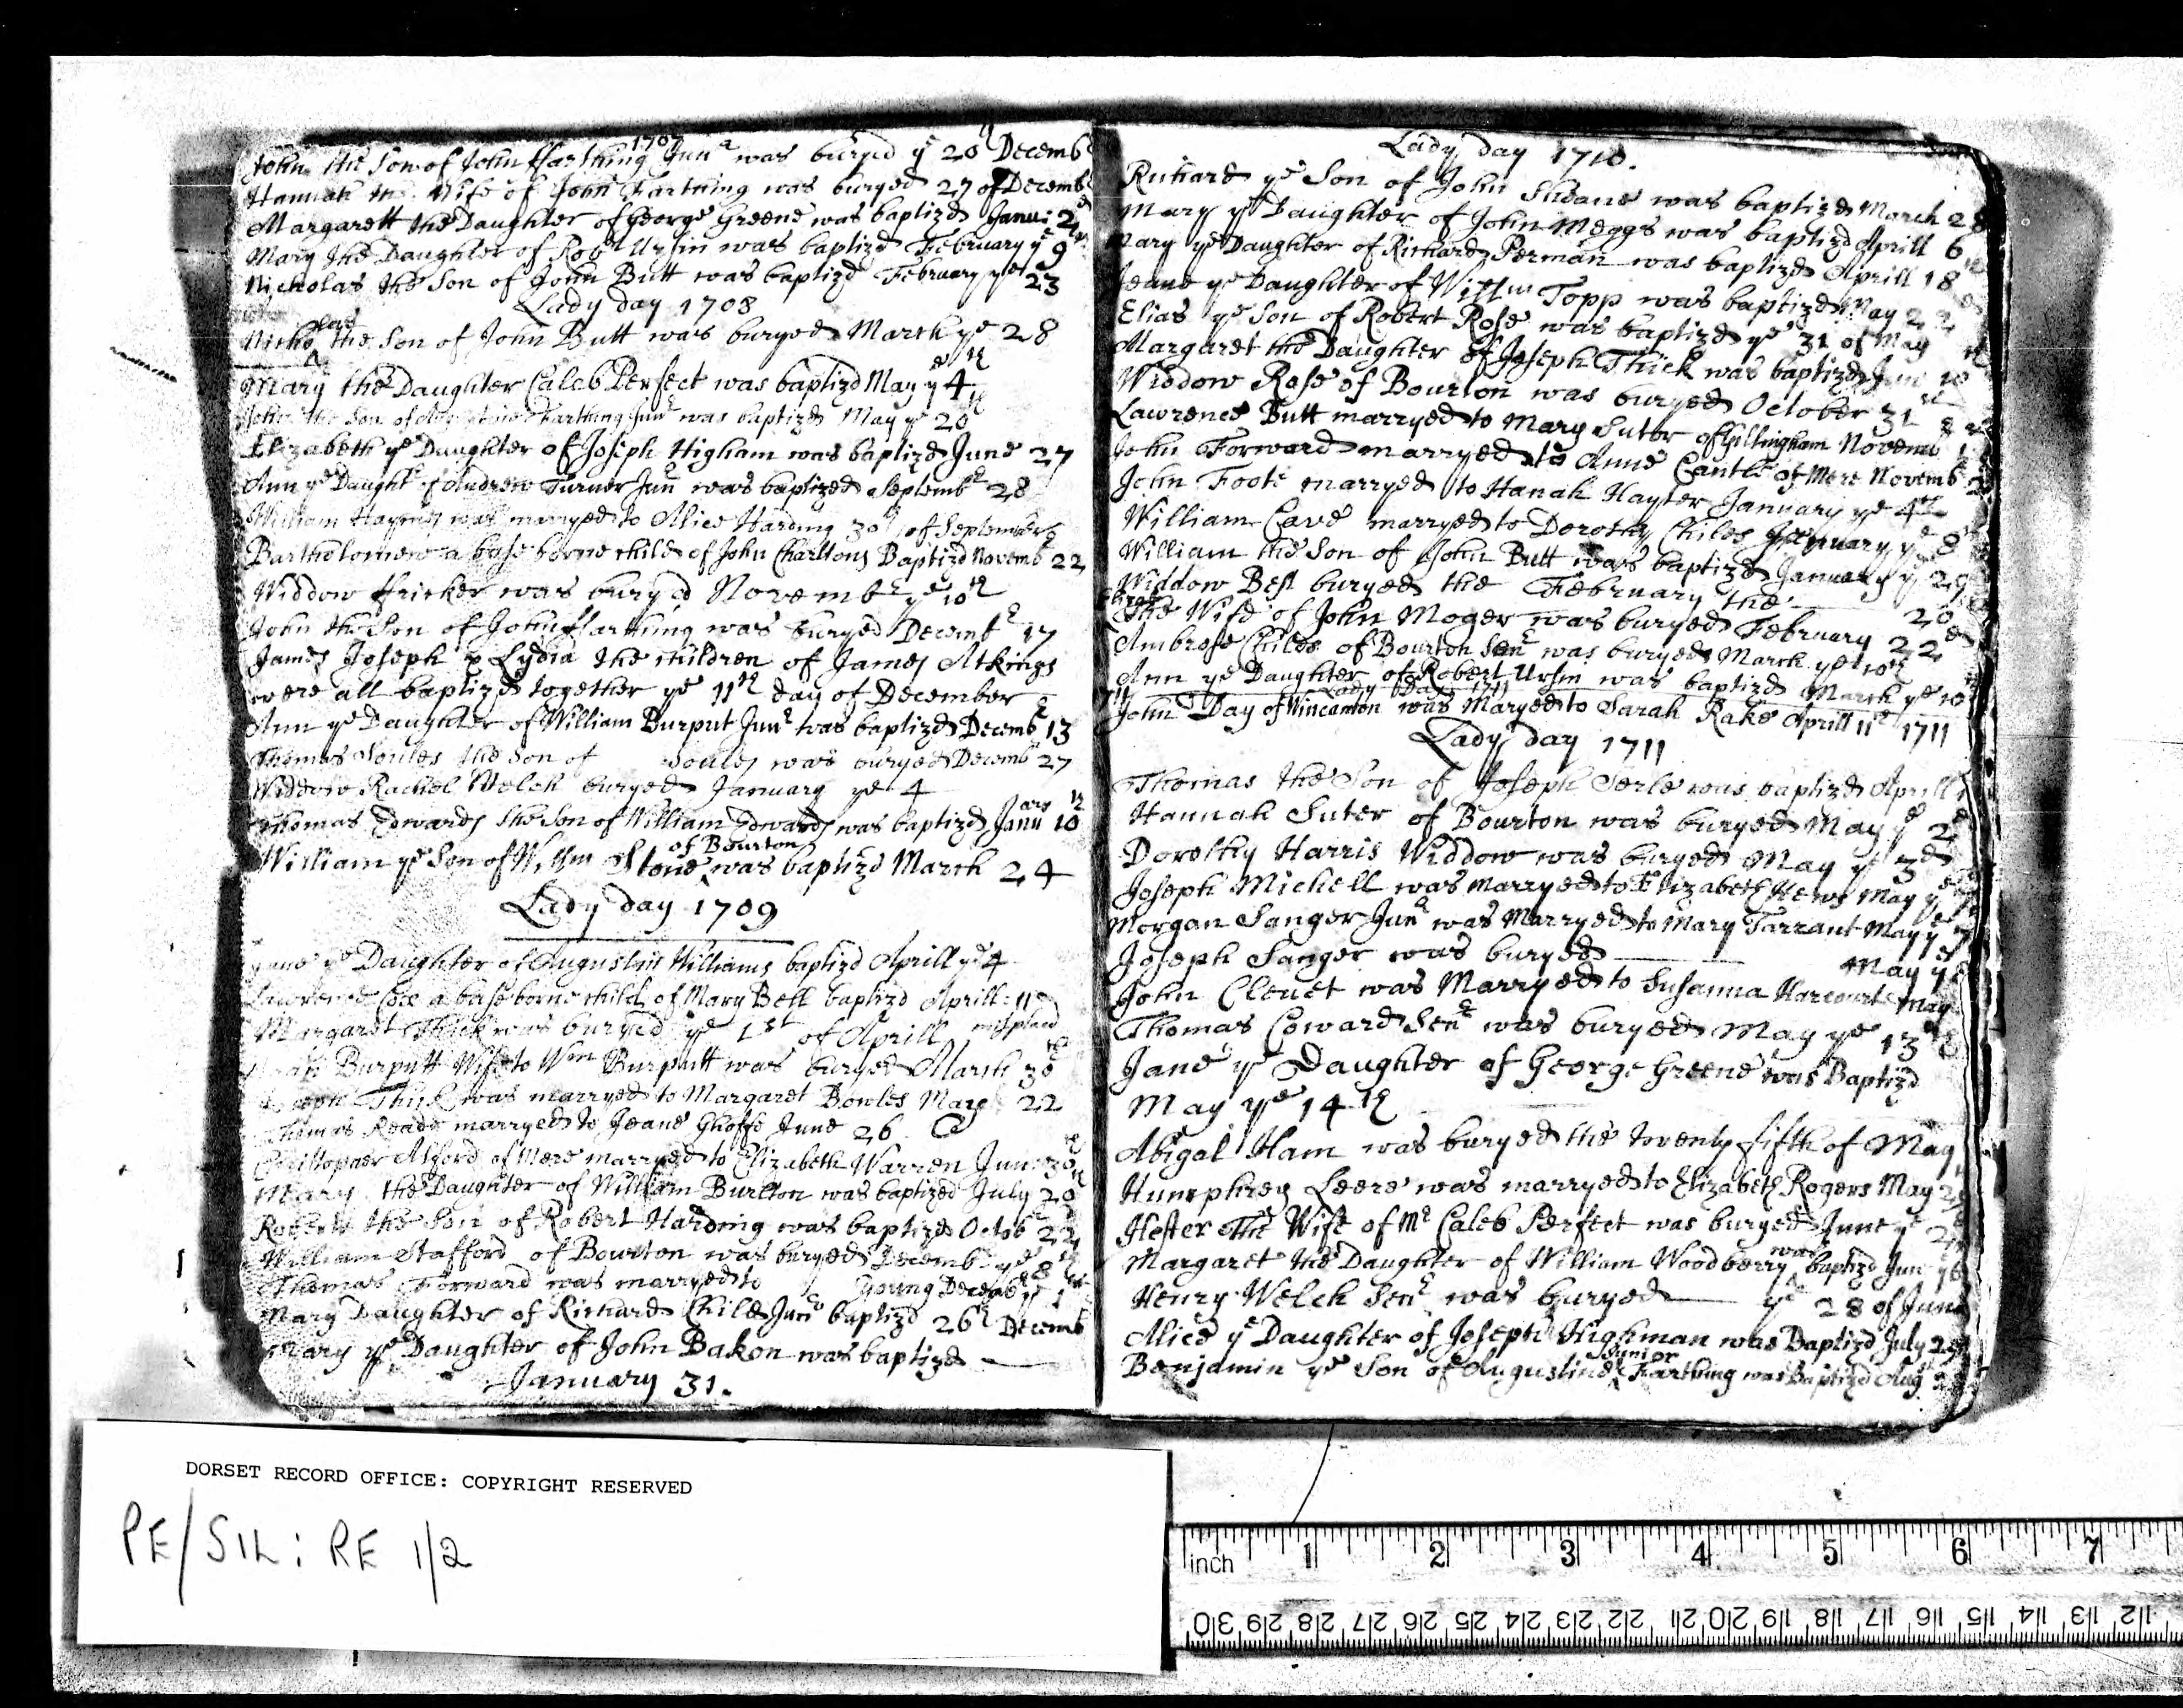 1707
John the Son of John ffarthing Junr was buryed ye 20 Decemb
Hannah the Wife of John Farthing was buryed 27 of Decemb
Margarett the Daughter of George Greene was baptizd Janu: 2d
Mary the Daughter of Robt Ursin was baptizd February ye 9
Nicholas the Son of John Butt was baptizd February ye 23
Lady day 1708
Nicholas the Son of John Butt was buryed March ye 28
Mary the Daughter Caleb Perfect was baptizd May ye 4th
John the Son of Farthing Junr was baptized May ye 20th
Elizabeth ye Daughter of Joseph Higham was baptizd June 27
Ann ye Daughtr of Andrew Turner Junr was baptized Septembr 28
William Haymes was marryed to Alice Harding 30th of September
Bartholomew a base borne child of John Charltons Baptizd Novemb 22
Widdow ffricker was buryd Novembr ye 10th
John the Son of John ffarthing was buryed Decembr 17
James Joseph & Lydia the children of James Atkings
were all baptizd together ye 11th day of December
Ann ye Daughter of William Burput Junr was baptizd Decembr 13
Thomas Soules the Son of Soules was buryed Decembr 27
Widdow Rachel Welch buryed January ye 4
Thomas Edwards the Son of William Edwards was baptizd January 10th
William ye Son of Willm Stone of Bourton was baptizd March 24
Lady day 1709
Jane ye Daughter of Augustin Williams baptizd Aprill ye 4
Lawrence Coce a base borne child of Mary Bell baptizd Aprill: 11
Margaret Thick was buryed ye 1st of Aprill misplaed
Burputt Wife to Wm Burputt was buryed March 30th
Joseph Thick was marryed to Margaret Bowles May 22
Thomas Reade marryed to Jeane Ghoffe June 26
Christopher Alford of Mere marryed to Elizabeth Warren June 30th
Mary the Daughter of William Burlton was baptized July 20th
Robert the Son of Robert Harding was baptizd Octobr 22
William Stafford of Bourton was buryed Decembr ye 8th
Thomas Forward was marryed to Young Decembr ye 1st
Mary Daughter of Richard Child Junr baptizd 26th Decemb
Mary ye Daughter of John Bakon was baptized
January 31.
Lady day 1710.
Richard ye Son of John Sudane was baptizd March 28
Mary ye Daughter of John Meggs was baptizd Aprill 6th
Mary ye Daughter of Richard Perman was baptizd Aprill 18th
Jeane ye Daughter of Willm Topp was baptized May 22d
Elias ye Son of Robert Rose was baptizd ye 31 of May
Margaret the Daughter of Joseph Thick was baptizd June 10th
Widdow Rose of Bourton was buryed October 31st
Lawrence Butt marryed to Mary Suter of Gillingham Novemb
John Forward marryed to Anne Cantle of Mere Novemb
John Foote marryed to Hanah Hayter January ye 4th
William Cave marryed to Dorothy Childs January ye 8
William the Son of John Butt was baptizd January ye 29
Widdow Best buryed the February the 20
Elizab the Wife of John Moger was buryed February 22d
Ambrose Childs of Bourton Senr was buryed March ye 10th
Ann ye Daughter of Robert Ursin was baptizd March ye 10
Lady Day 1711
John Day of Wincanton was Maryed to Sarah Rake Aprill 11th 1711
Lady day 1711
Thomas the Son of Joseph Serle was baptizd Aprill
Hannah Suter of Bourton was buryed May ye 2d
Dorothy Harris Widdow was buryed May ye 3d
Joseph Michell was marryed to Elizabeth Hews May ye
Morgan Sanger Junr was Marryed to Mary Tarrant May ye 7
Joseph Sanger was buryed May ye
John Clevet was Marryed to Susanna Harcourt May
Thomas Coward Senr was buryed May ye 13th
Jane ye Daughter of George Greene was Baptizd
May ye 14th
Abigal Ham was buryed the twenty fifth of May
Humphrey Leere was marryed to Elizabeth Rogers May 29
Hester The Wife of Mr Caleb Perfect was buryed June ye
Margaret the Daughter of William Woodberry was baptizd Jun
Henry Welch Senr was buryed ye 28 of June
Alice ye Daughter of Joseph Highman was Baptizd July 29
Benjamin ye Son of Augustine Junior Farthing was Baptizd Aug
DORSET RECORD OFFICE: COPYRIGHT RESERVED
PE/SIL: RE 1/2
inch 1 2 3 4 5 6 7
30 29 28 27 26 25 24 23 22 21 20 19 18 17 16 15 14 13 12